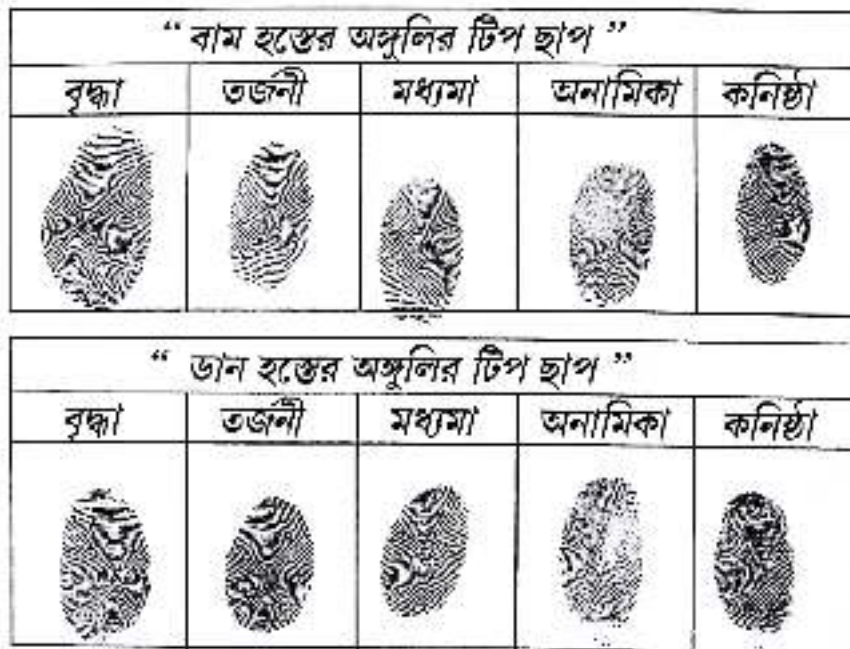 “ বাম হস্তের অঙ্গুলির টিপ ছাপ ”
বৃদ্ধা তর্জনী মধ্যমা অনামিকা কনিষ্ঠা
“ ডান হস্তের অঙ্গুলির টিপ ছাপ ”
বৃদ্ধা তর্জনী মধ্যমা অনামিকা কনিষ্ঠা